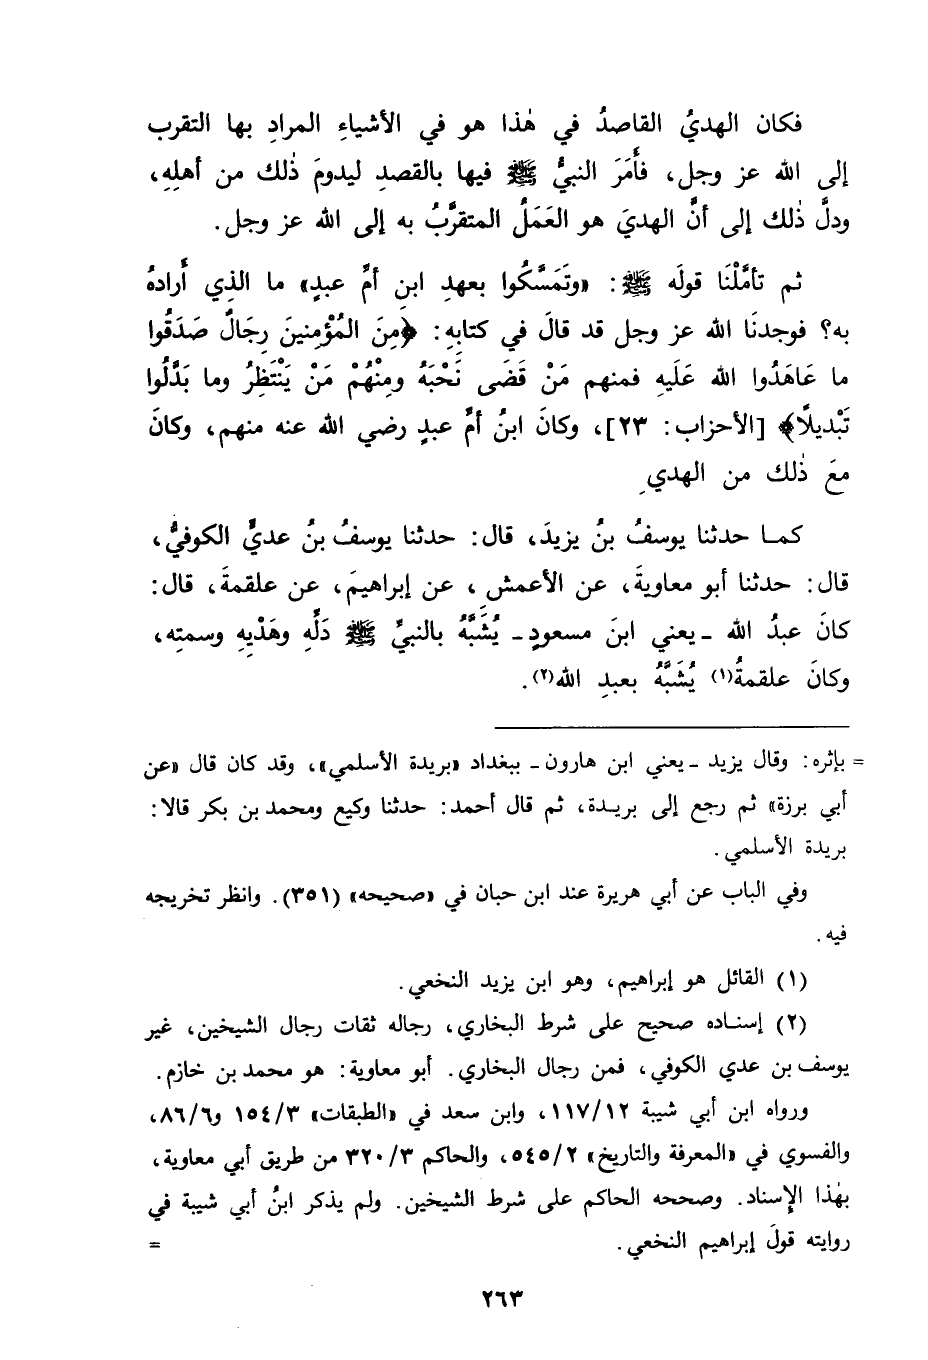 فكان الهديُ القاصدُ في هٰذا هو في الأشياءِ المرادِ بها التقرب
إلى الله عز وجل، فأَمَرَ النبيُّ ﷺ فيها بالقصدِ ليدومَ ذٰلك من أهلِهِ،
ودلَّ ذٰلك إلى أنَّ الهديَ هو العَمَلُ المتقرَّبُ به إلى الله عز وجل.
ثم تأمَّلْنَا قولَه ﷺ: «وتَمَسَّكُوا بعهدِ ابنِ أمِّ عبدٍ» ما الذي أَرادهُ
به؟ فوجدنَا الله عز وجل قد قالَ في كتابِهِ: ﴿مِنَ المُؤْمِنينَ رِجَالٌ صَدَقُوا
ما عَاهَدُوا الله عَلَيهِ فمنهم مَنْ قَضَى نَحْبَهُ ومِنْهُمْ مَنْ يَنْتَظِرُ وما بَدَّلُوا
تَبْديلًا﴾ [الأحزاب: ٢٣]، وكانَ ابنُ أمِّ عبدٍ رضي الله عنه منهم، وكانَ
معَ ذٰلك من الهديِ
كمـا حدثنا يوسفُ بنُ يزيدَ، قال: حدثنا يوسفُ بنُ عديٍّ الكوفيُّ،
قال: حدثنا أبو معاويةَ، عن الأعمشِ، عن إبراهيمَ، عن علقمةَ، قال:
كانَ عبدُ الله ـ يعني ابنَ مسعودٍ ـ يُشَبَّهُ بالنبيِّ ﷺ دَلِّهِ وهَدْيِهِ وسمتِه،
وكانَ علقمةُ(١) يُشَبَّهُ بعبدِ الله(٢).
= بإثره: وقال يزيد ـ يعني ابن هارون ـ ببغداد «بريدة الأسلمي»، وقد كان قال «عن
أبي برزة» ثم رجع إلى بريـدة، ثم قال أحمد: حدثنا وكيع ومحمد بن بكر قالا:
بريدة الأسلمي.
وفي الباب عن أبي هريرة عند ابن حبان في «صحيحه» (٣٥١). وانظر تخريجه
فيه.
(١) القائل هو إبراهيم، وهو ابن يزيد النخعي.
(٢) إسنـاده صحيح على شرط البخاري، رجاله ثقات رجال الشيخين، غير
يوسف بن عدي الكوفي، فمن رجال البخاري. أبو معاوية: هو محمد بن خازم.
ورواه ابن أبي شيبة ١١٧/١٢، وابن سعد في «الطبقات» ١٥٤/٣ و٨٦/٦،
والفسوي في «المعرفة والتاريخ» ٥٤٥/٢، والحاكم ٣٢٠/٣ من طريق أبي معاوية،
بهٰذا الإِسناد. وصححه الحاكم على شرط الشيخين. ولم يذكر ابنُ أبي شيبة في
روايته قولَ إبراهيم النخعي. =
٢٦٣